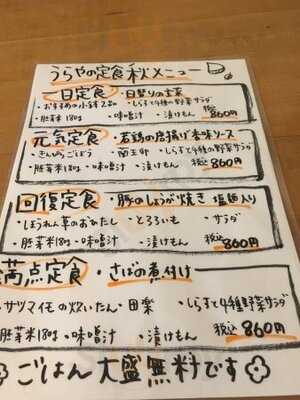 うらやの定食秋メニュー
一日定食・日替りの主菜
・おすすめの小鉢2品・しらすと4種の野菜サラダ
・胚芽米180g・味噌汁・漬けもん 税込860円
元気定食・若鶏の唐揚げ香味ソース
・きんぴらごぼう・南王卵・しらすと4種の野菜サラダ
・胚芽米180g・味噌汁・漬けもん 税込860円
回復定食・豚のしょうが焼き 塩麹入り
・ほうれん草のおひたし・とろろいも・サラダ
・胚芽米180g・味噌汁・漬けもん 税込860円
満点定食・さばの煮付け
・サツマイモの炊いたん・田楽・しらすと4種野菜サラダ
胚芽米180g・味噌汁・漬けもん 税込860円
ごはん大盛無料です